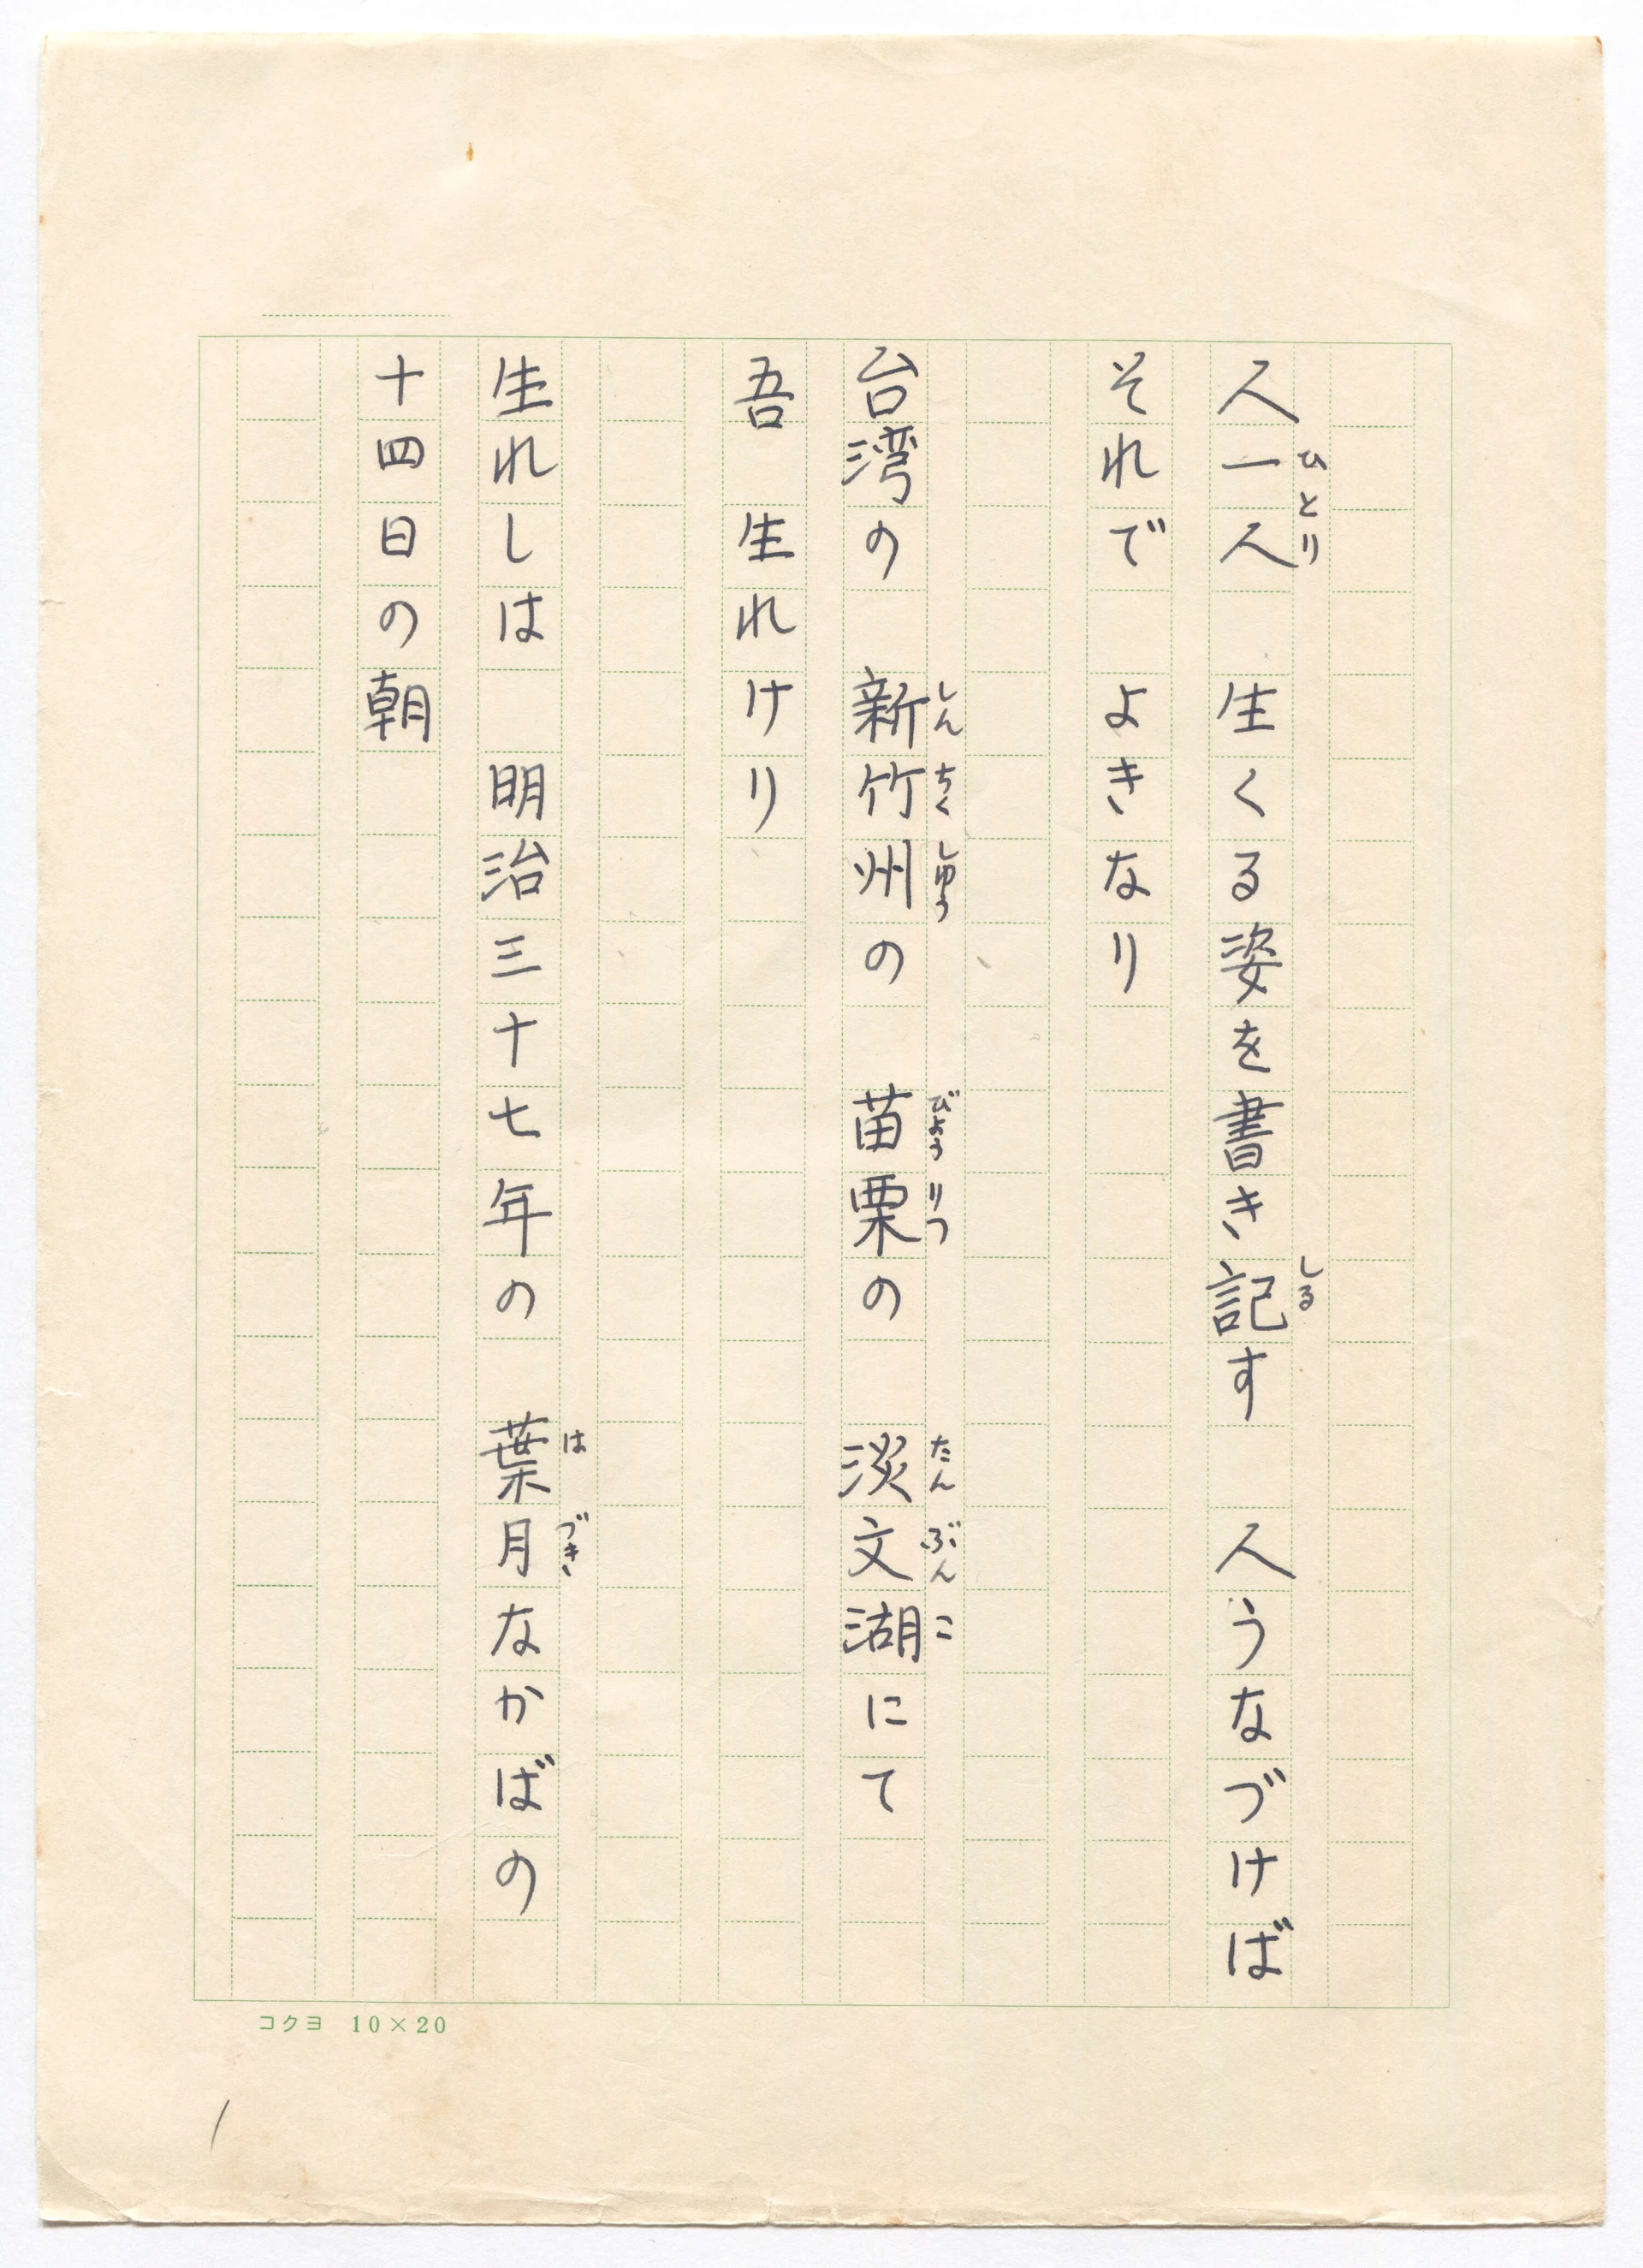 人一人　生くる姿を書き記す　人うなづけば
ひとり
しる
それで　よきなり
台湾の　新竹州の　苗栗の　淡文湖にて
しん ちく しゅう
びょう りつ
たん ぶん こ
吾　生れけり
生れしは　明治三十七年の　葉月なかばの
は づき
十四日の朝
コクヨ 10×20
1